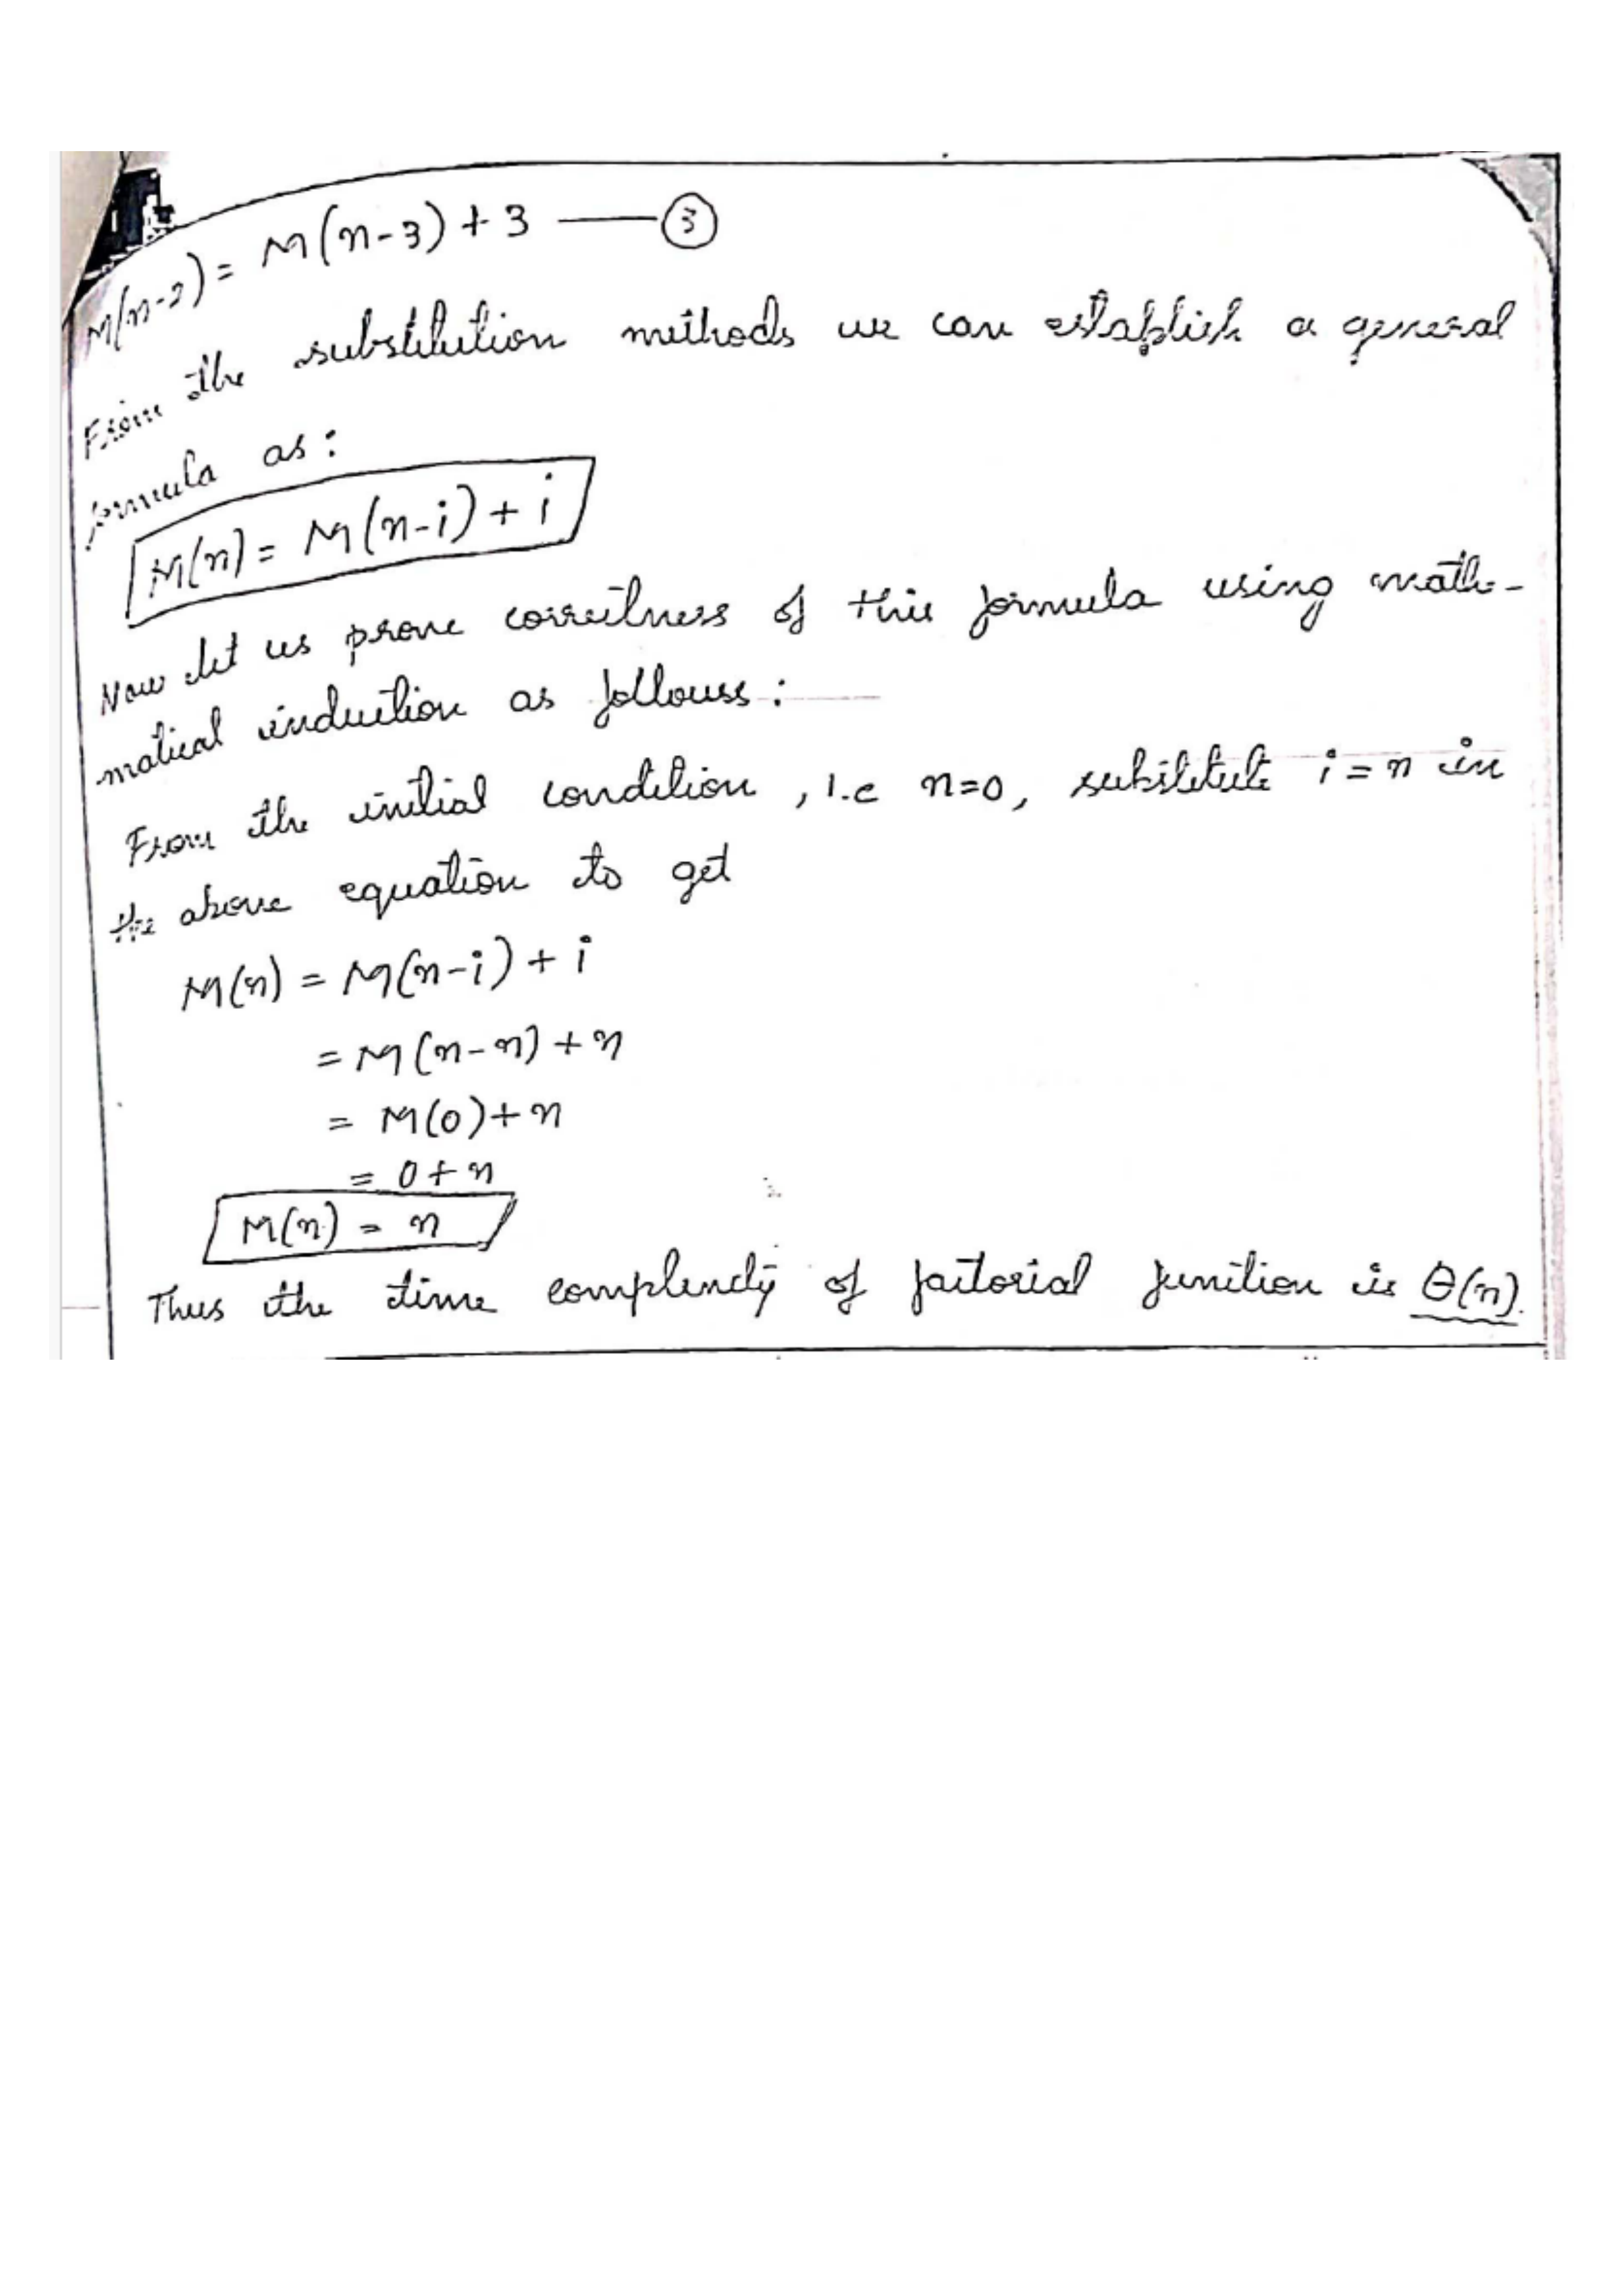 M(n-2) = M(n-3) + 3 —— ③
From the substitution methods we can establish a general
formula as:
M(n) = M(n-i) + i
Now let us prove correctness of this formula using mathe-
matical induction as follows:
From the initial condition, i.e n=0, substitute i=n in
the above equation to get
M(n) = M(n-i) + i
= M(n-n) + n
= M(0) + n
= 0 + n
M(n) = n
Thus the time complexity of factorial function is Θ(n).